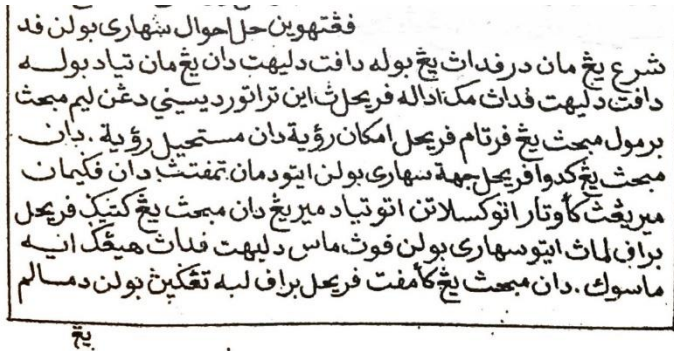 فڠتهوين حل احوال سهاري بولن فد
شرع يڠ مان درفداث يڠ بوله دافت دليهت دان يڠ مان تياد بوله
دافت دليهت فداث مك اداله فريحلث اين تراتور ديسيني دڠن ليم مبحث
برمول مبحث يڠ فرتام فريحل امكان رؤية دان مستحيل رؤية . دان
مبحث يڠ كدوا فريحل جهة سهاري بولن ايتو دمان تمفتث دان فكيمان
ميريڠث كأوتار اتوكسلاتن اتو تياد ميريڠ دان مبحث يڠ كتيݢ فريحل
براف لماث ايتو سهاري بولن فوث ماس دليهت فداث هيڠݢ اي
ماسوك . دان مبحث يڠ كأمفت فريحل براف لبه تڠكيث بولن دمسالم
يڠ